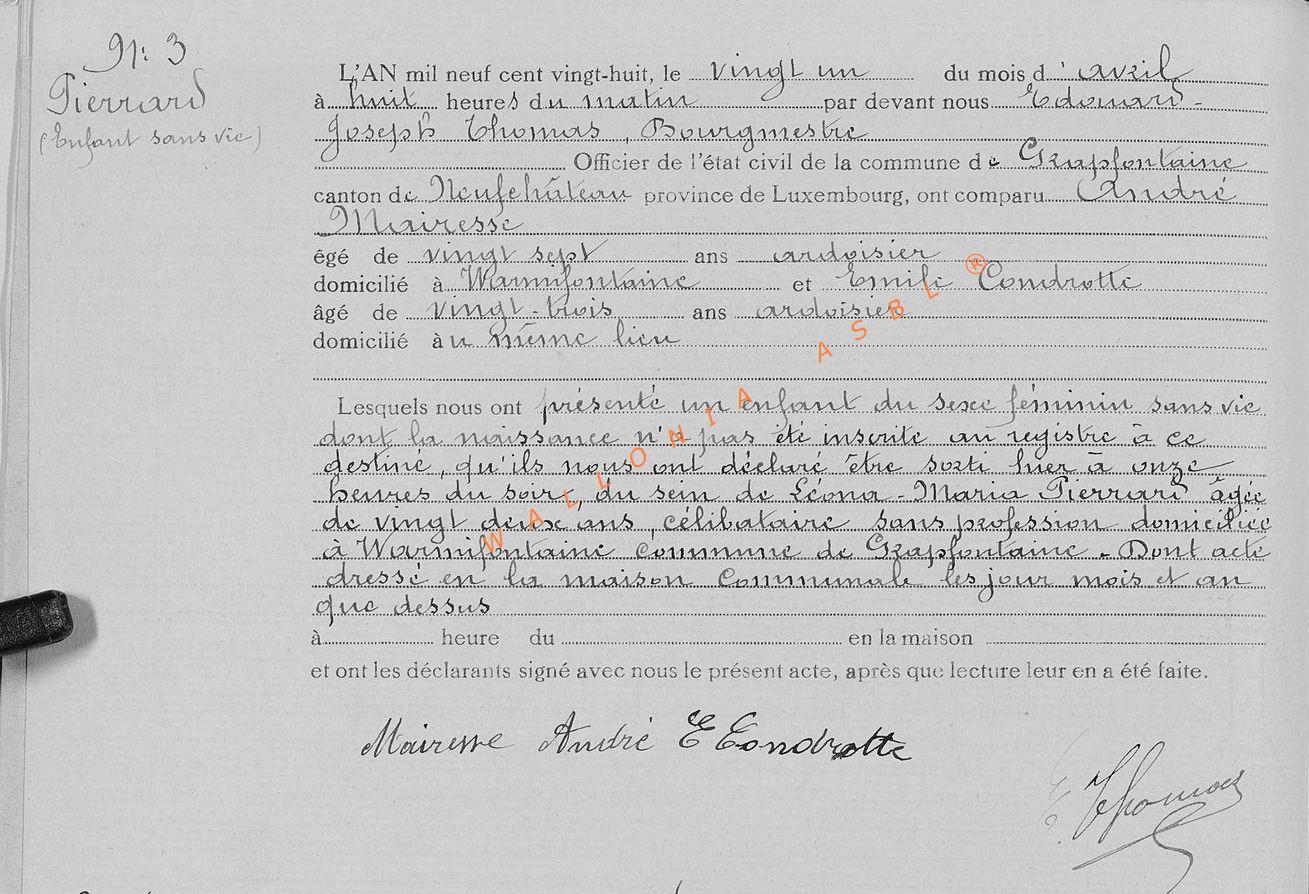 N: 3
Pierrard
(Enfant sans vie)
L'AN mil neuf cent vingt-huit, le vingt un du mois d'avril
à huit heures du matin par devant nous Edouard-
Joseph Thomas, Bourgmestre
Officier de l'état civil de la commune de Grapfontaine
canton de Neufchâteau province de Luxembourg, ont comparu André
Mairesse
êgé de vingt sept ans ardoisier
domicilié à Warmifontaine et Emile Condrotte
âgé de vingt-trois ans ardoisier
domicilié au même lieu
Lesquels nous ont présenté un enfant du sexe féminin sans vie
dont la naissance n'a pas été inscrite au registre à ce
destiné, qu'ils nous ont déclaré être sorti hier à onze
heures du soir, du sein de Léona-Maria Pierrard âgée
de vingt deux ans, célibataire sans profession domiciliée
à Warmifontaine commune de Grapfontaine - Dont acte
dressé en la maison Communale les jour mois et an
que dessus
à heure du en la maison
et ont les déclarants signé avec nous le présent acte, après que lecture leur en a été faite.
Mairesse André E Condrotte
E Thomas
WALLONIA ASBL ®